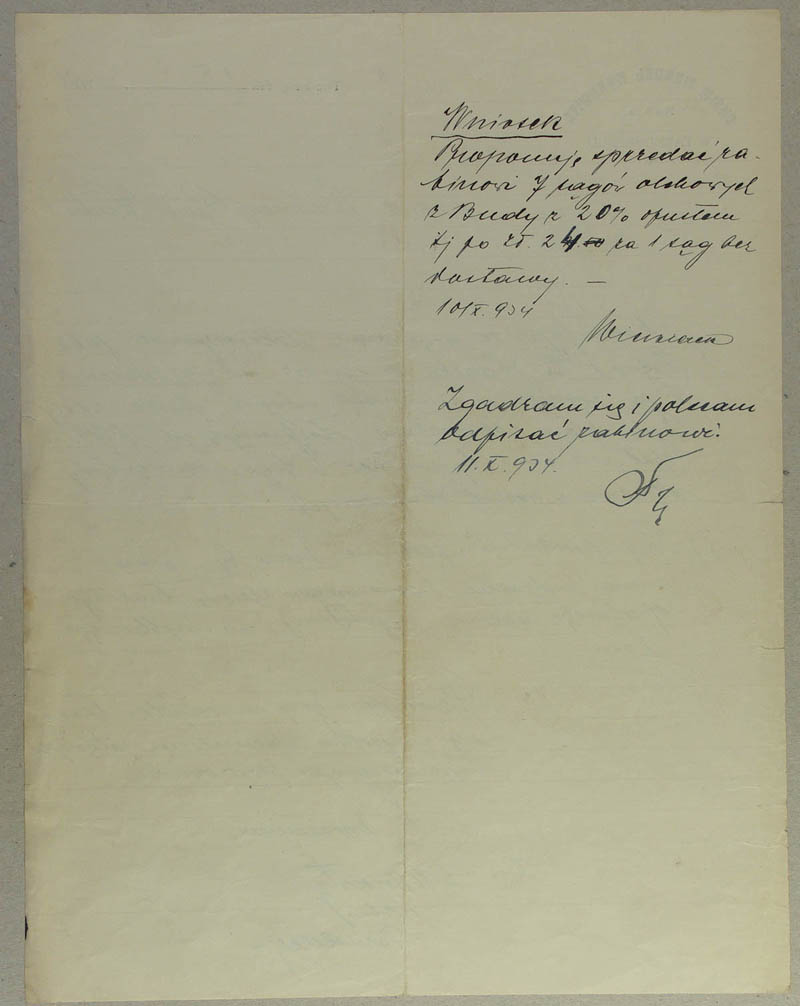 Wniosek
Proponuję sprzedać ra-
binowi 7 sągów olchowych
z Budy z 20% opustem
tj po zł. 24.- za 1 sąg bez
dostawy. —
10/X. 934
Zgadzam się i polecam
odpisać rabinowi.
11.X.934.